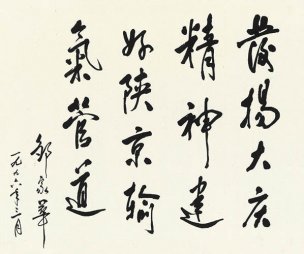 發揚大庆
精神建
好陕京输
氣管道
邹家華
一九九六年三月